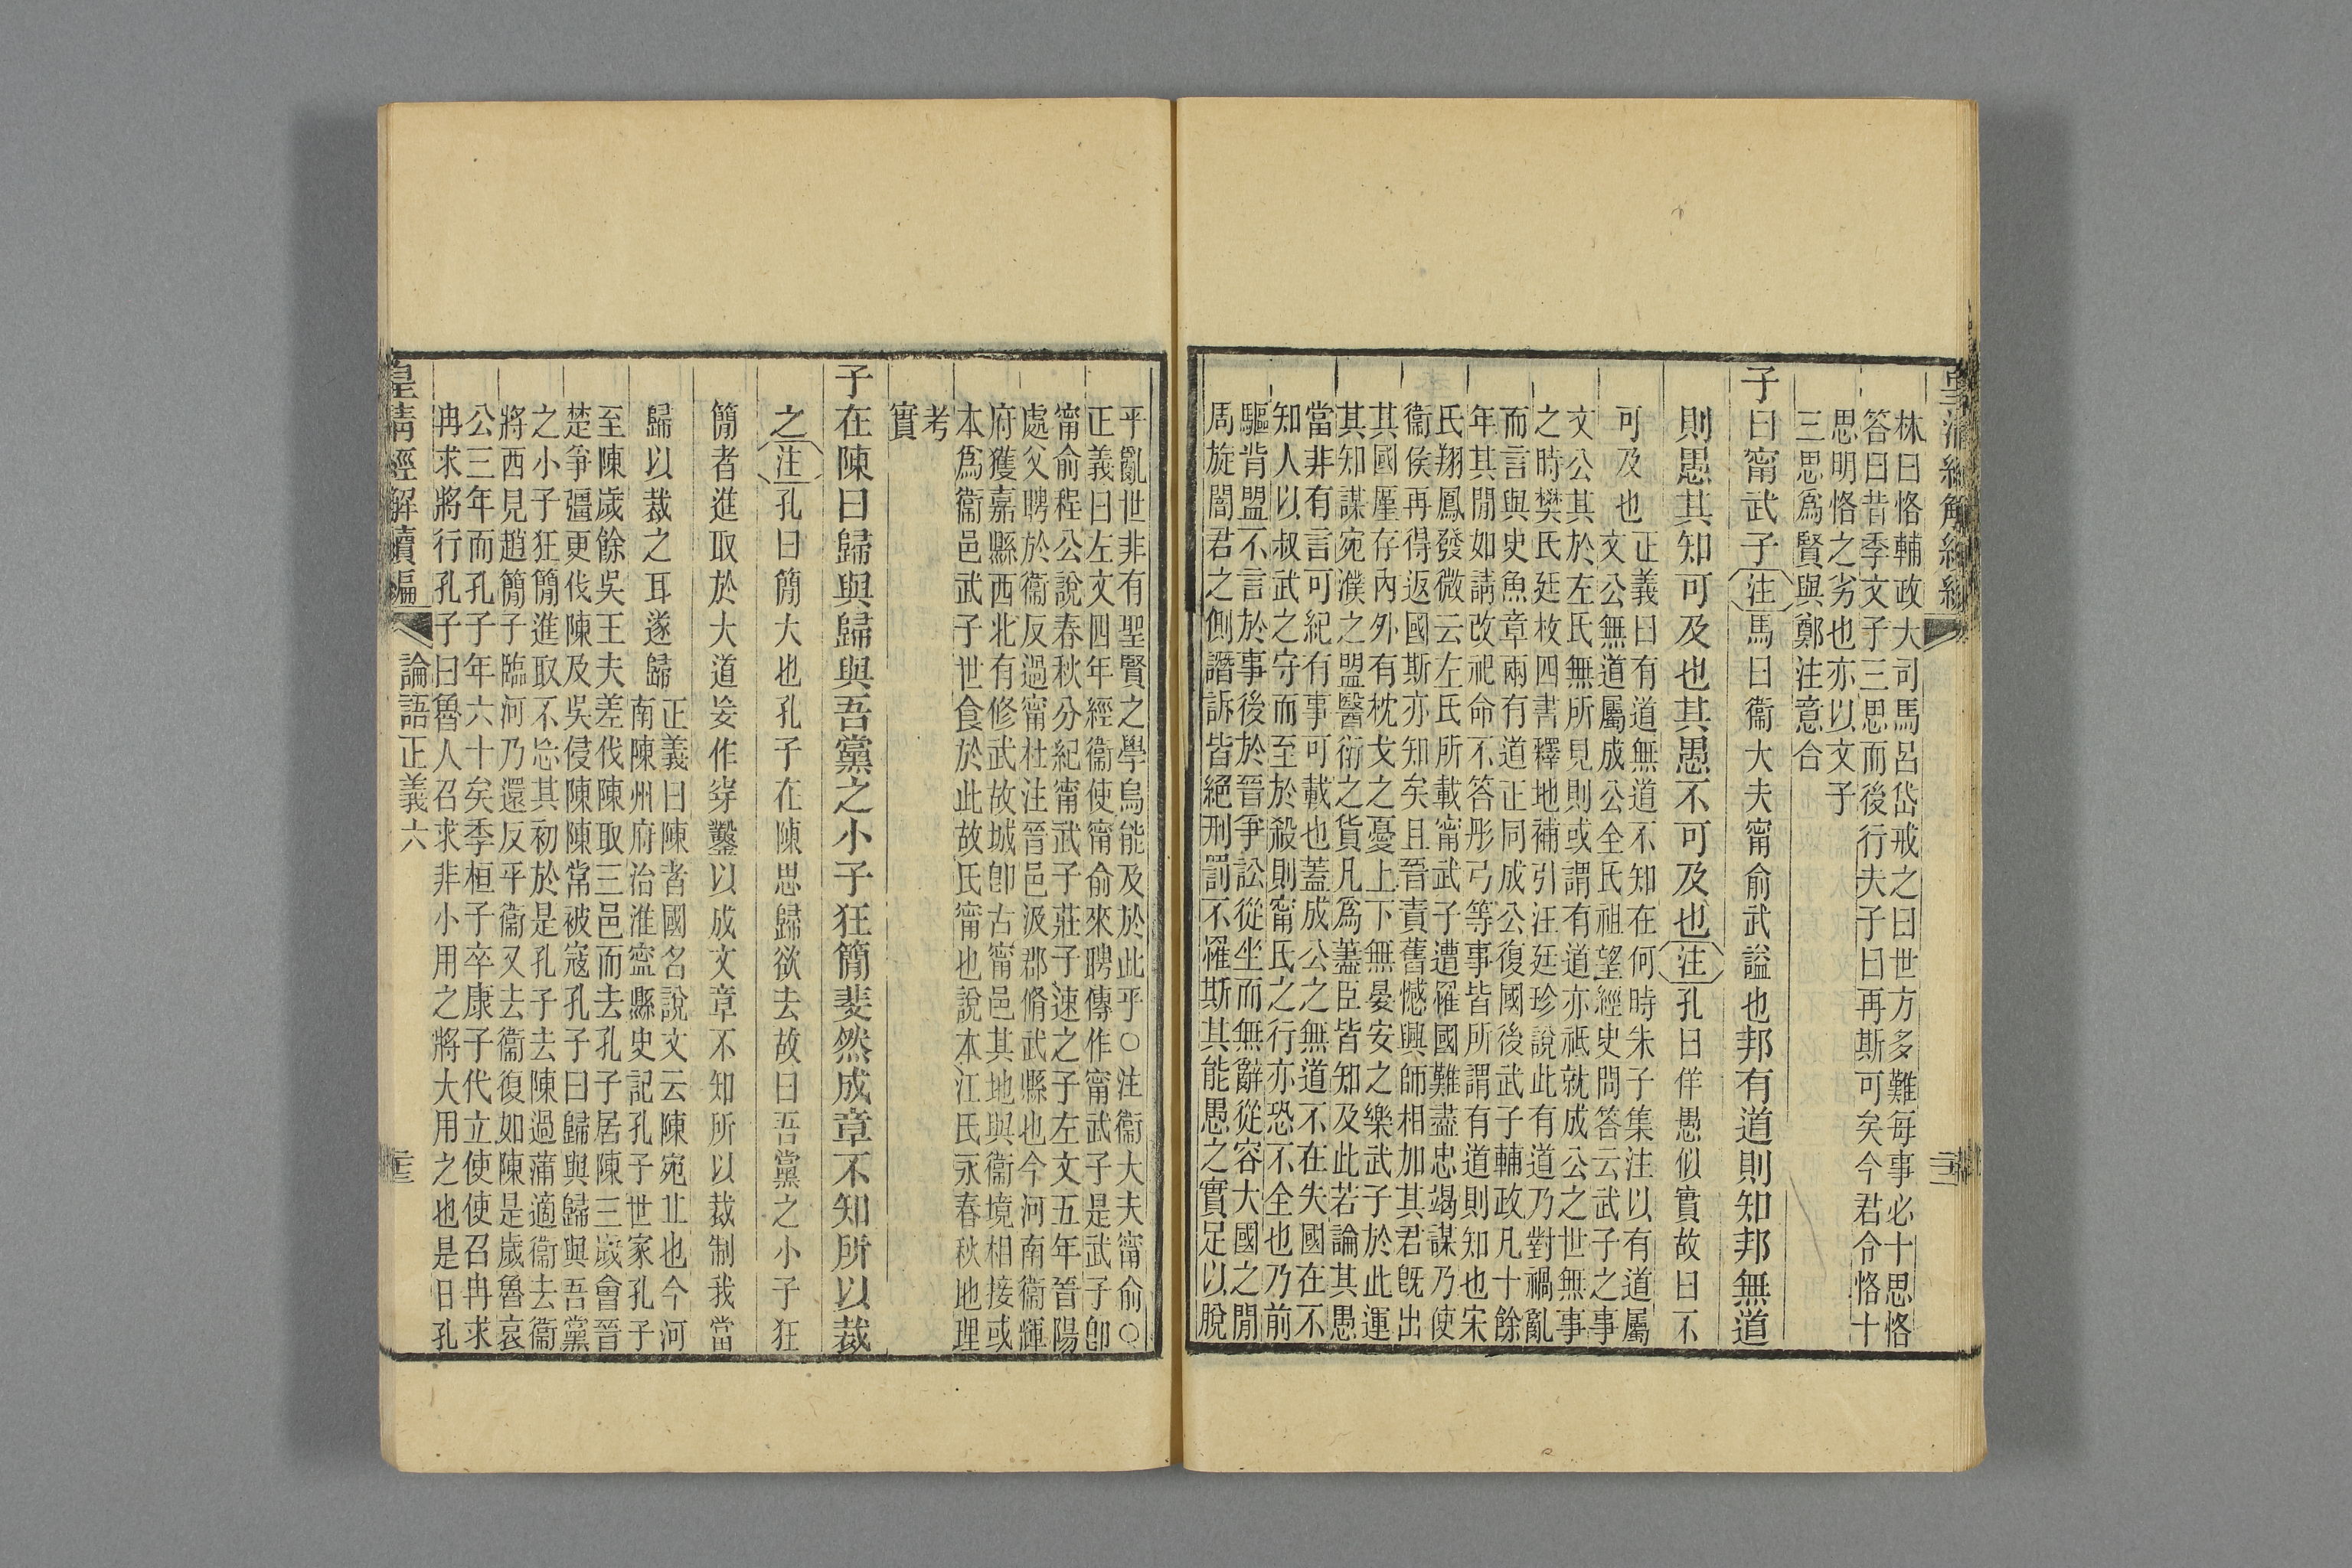 皇清經解續編
林曰恪輔政大司馬呂岱戒之曰世方多難每事必十思恪
答曰昔季文子三思而後行夫子曰再斯可矣今君令恪十
思明恪之劣也亦以文子
三思爲賢與鄭注意合
子曰甯武子注馬曰衞大夫甯俞武諡也邦有道則知邦無道
則愚其知可及也其愚不可及也注孔曰佯愚似實故曰不
可及也
正義曰有道無道不知在何時朱子集注以有道屬
文公無道屬成公全氏祖望經史問答云武子之事
文公其於左氏無所見則或謂有道亦祗就成公之世無事
之時樊氏廷枚四書釋地補引汪廷珍說此有道乃對禍亂
而言與史魚章兩有道正同成公復國後武子輔政凡十餘
年其閒如請改祀命不答彤弓等事皆所謂有道則知也宋
氏翔鳳發微云左氏所載甯武子遭罹國難盡忠竭謀乃使
衞侯再得返國斯亦知矣且晉責舊憾興師相加其君旣出
其國壥存內外有枕戈之憂上下無晏安之樂武子於此運
其知謀宛濮之盟醫衍之貨凡爲藎臣皆知及此若論其愚
當非有言可紀有事可載也蓋成公之無道不在失國在不
知人以叔武之守而至於殺則甯氏之行亦恐不全也乃前
驅背盟不言於事後於晉爭訟從坐而無辭從容大國之閒
周旋闇君之側譖訴皆絕刑罰不罹斯其能愚之實足以脫
平亂世非有聖賢之學烏能及於此乎○注衞大夫甯俞○
正義曰左文四年經衞使甯俞來聘傳作甯武子是武子卽
甯俞程公說春秋分紀甯武子莊子速之子左文五年晉陽
處父聘於衞反過甯杜注晉邑汲郡脩武縣也今河南衞輝
府獲嘉縣西北有修武故城卽古甯邑其地與衞境相接或
本爲衞邑武子世食於此故氏甯也說本江氏永春秋地理
考
實
子在陳曰歸與歸與吾黨之小子狂簡斐然成章不知所以裁
之注孔曰簡大也孔子在陳思歸欲去故曰吾黨之小子狂
簡者進取於大道妄作穿鑿以成文章不知所以裁制我當
歸以裁之耳遂歸
正義曰陳者國名說文云陳宛丘也今河
南陳州府治淮寍縣史記孔子世家孔子
至陳歲餘吳王夫差伐陳取三邑而去孔子居陳三歲會晉
楚爭彊更伐陳及吳侵陳陳常被寇孔子曰歸與歸與吾黨
之小子狂簡進取不忘其初於是孔子去陳過蒲適衞去衞
將西見趙簡子臨河乃還反乎衞又去衞復如陳是歲魯哀
公三年而孔子年六十矣季桓子卒康子代立使使召冉求
冉求將行孔子曰魯人召求非小用之將大用之也是日孔
皇清經解續編　論語正義六